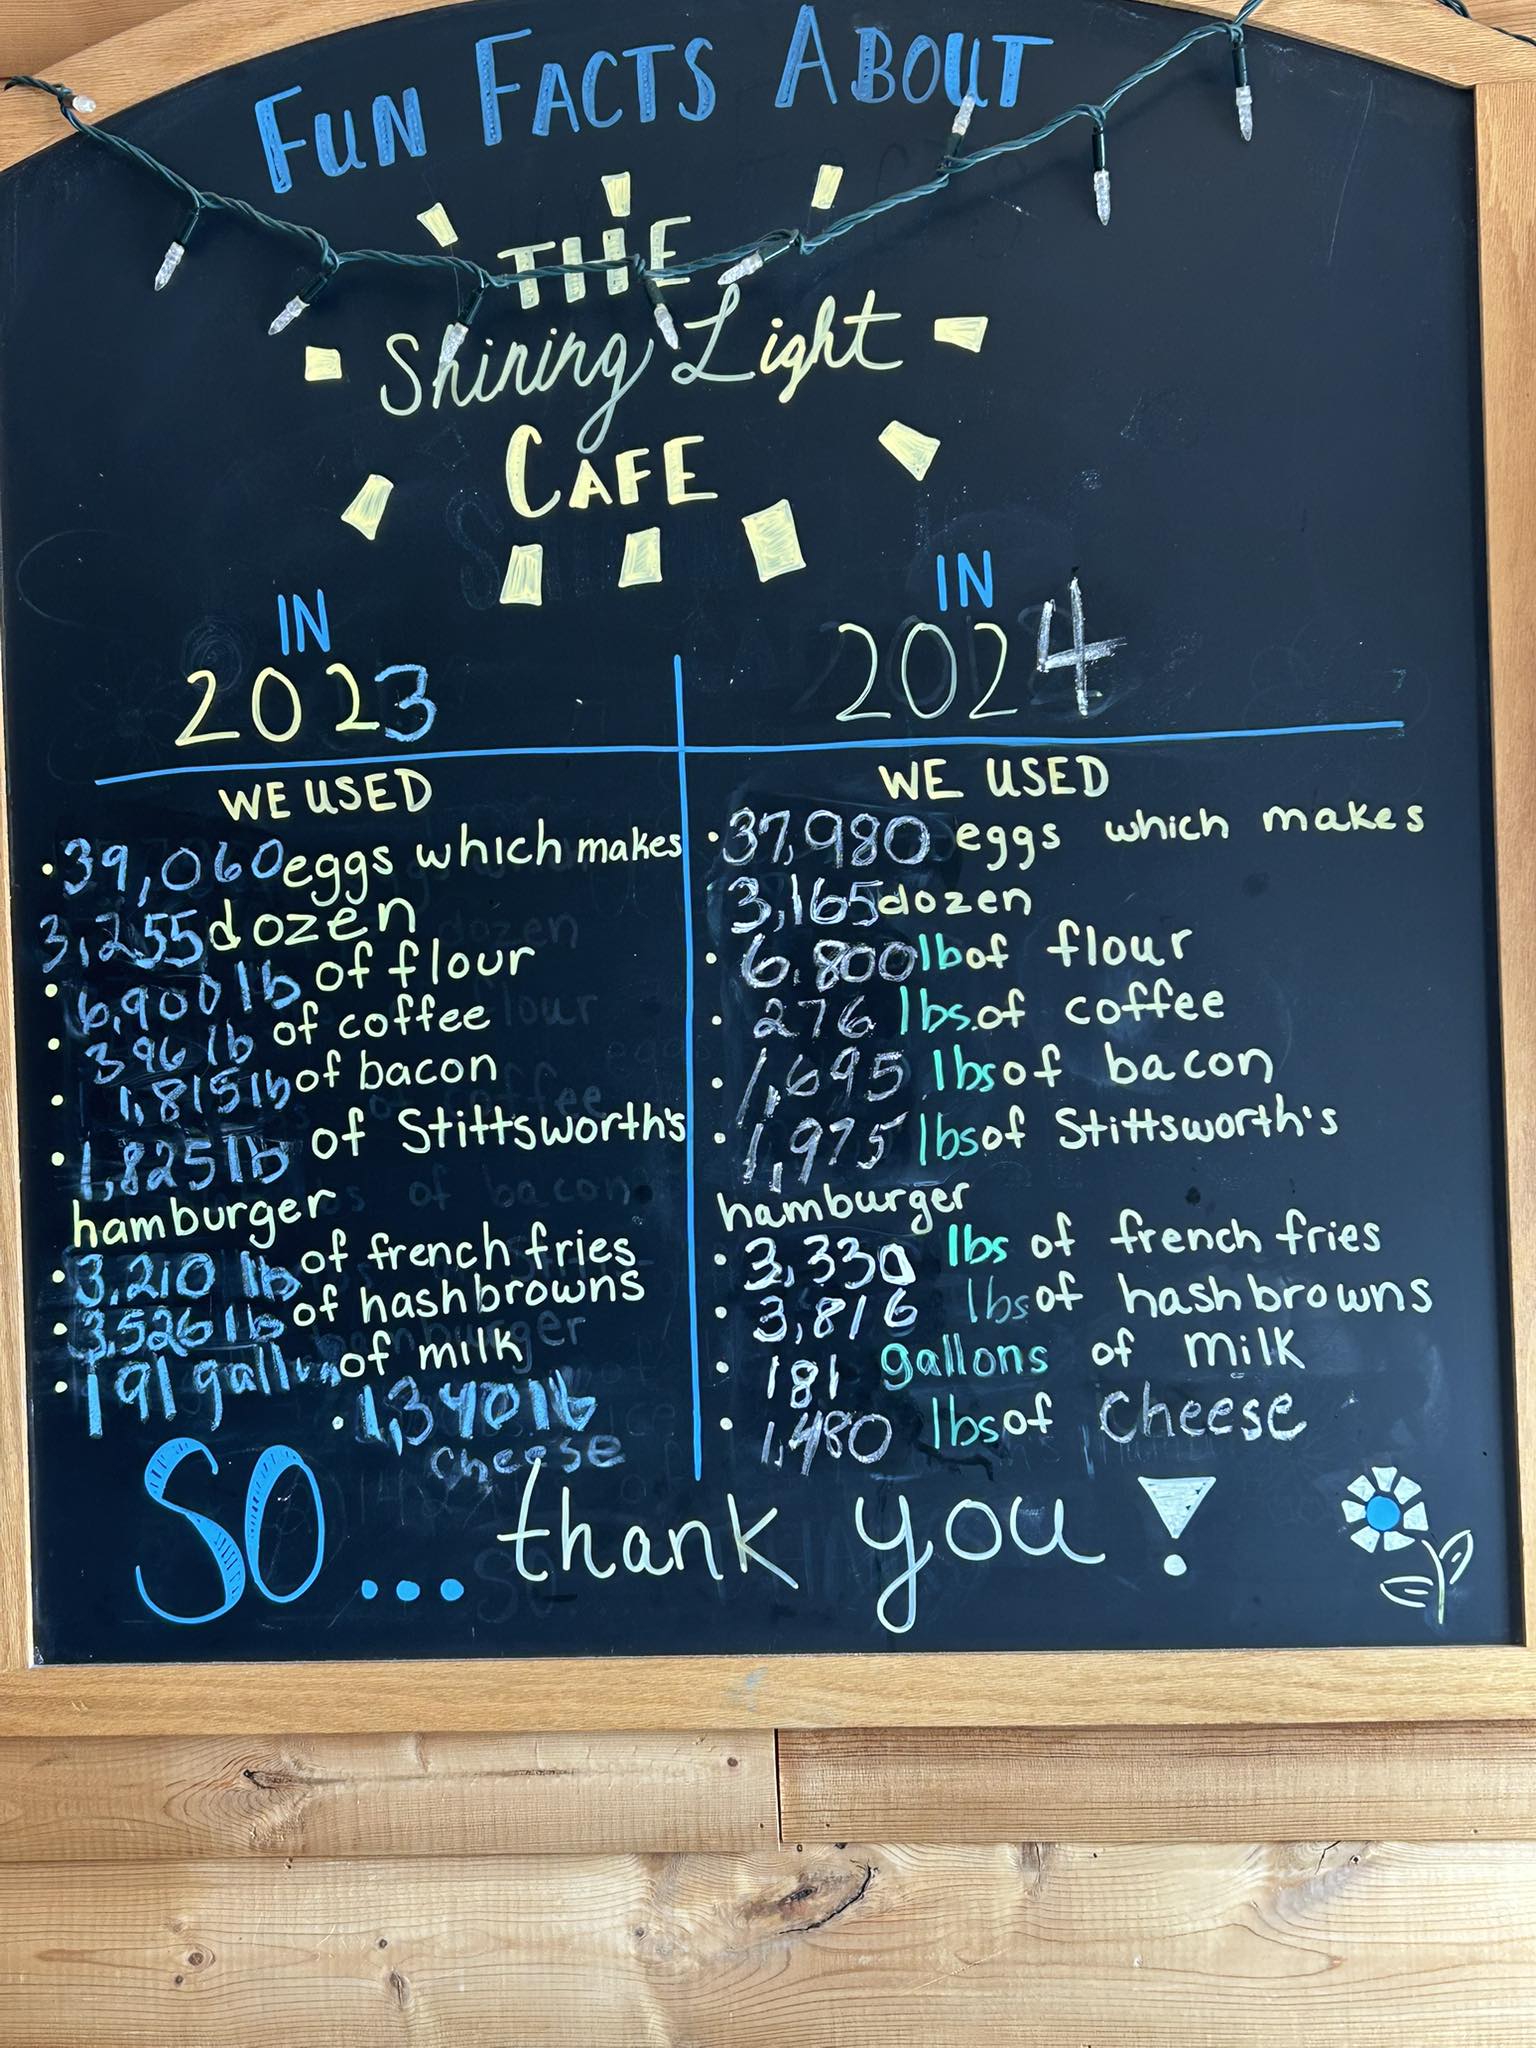 FUN FACTS ABOUT
THE
Shining Light
CAFE
IN
2023
WE USED
• 39,060 eggs which makes
3,255 dozen
• 6,900 lb of flour
• 396 lb of coffee
• 1,815 lb of bacon
• 1,825 lb of Stittsworth's
hamburger
• 3,210 lb of french fries
• 3,526 lb of hashbrowns
• 191 gallon of milk
• 1,340 lb
cheese
IN
2024
WE USED
• 37,980 eggs which makes
3,165 dozen
• 6,800 lb of flour
• 276 lbs. of coffee
• 1,695 lbs of bacon
• 1,975 lbs of Stittsworth's
hamburger
• 3,330 lbs of french fries
• 3,816 lbs of hashbrowns
• 181 gallons of milk
• 1,480 lbs of cheese
SO... thank you!